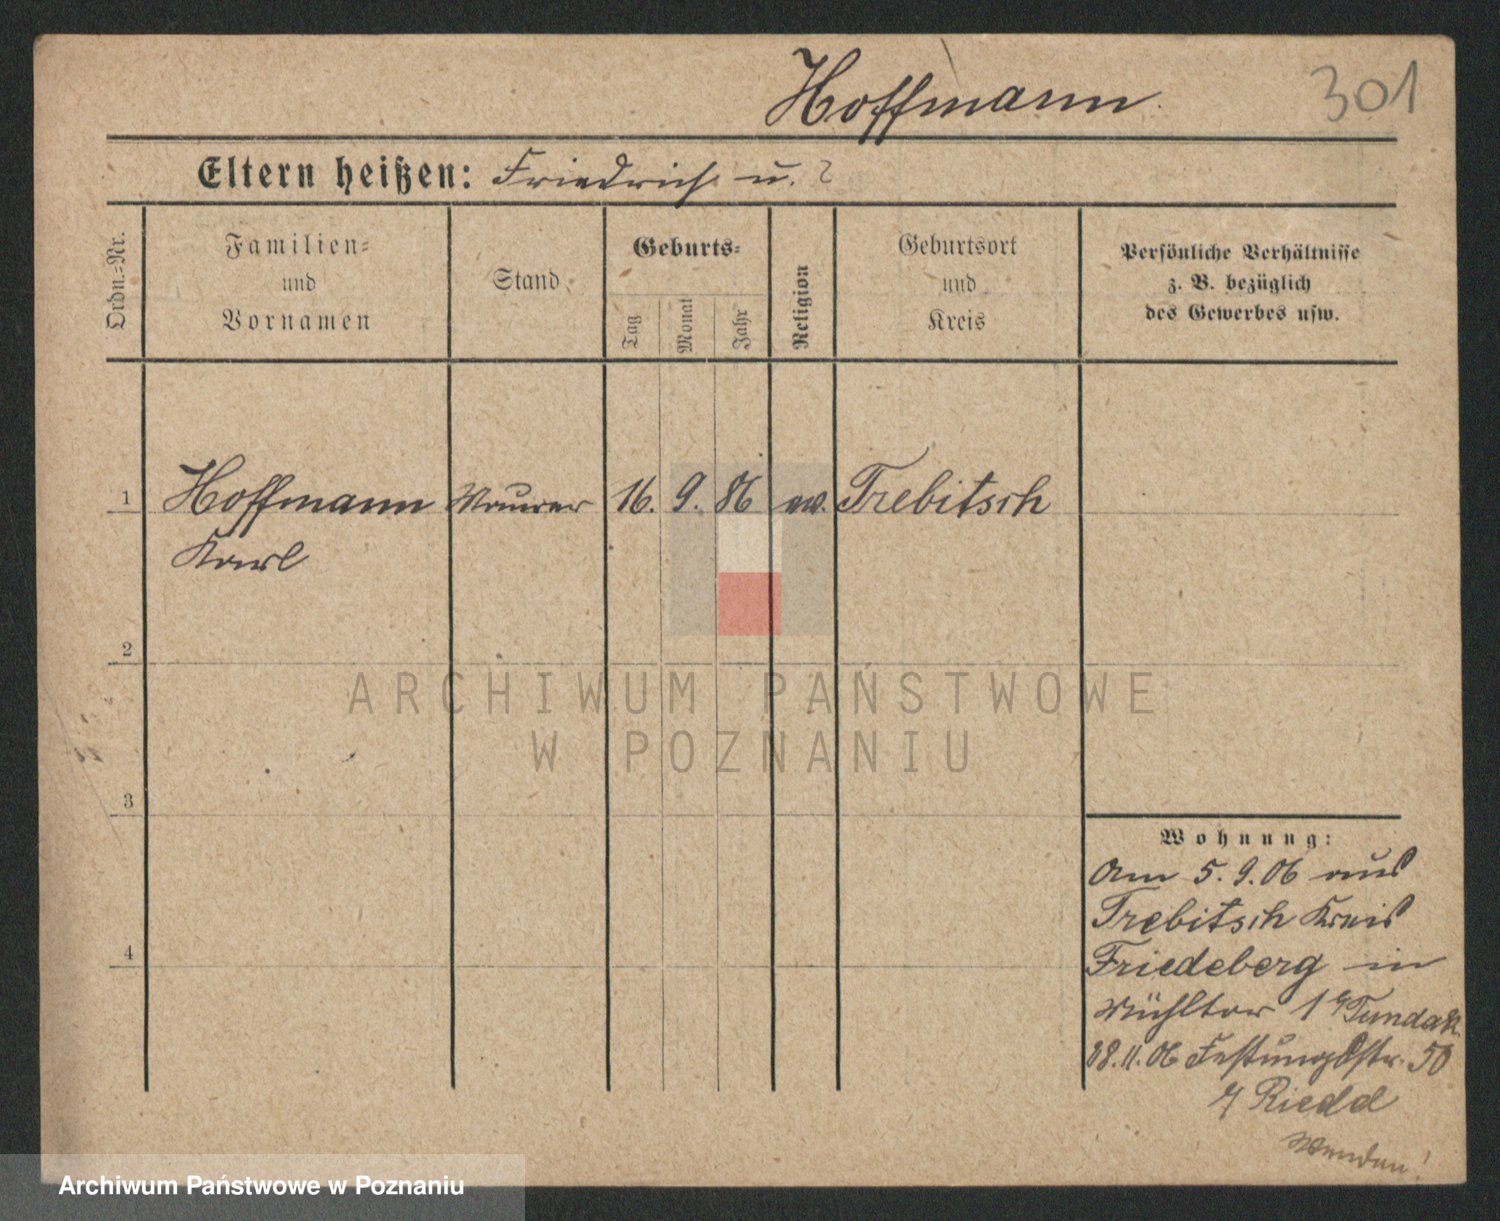 Hoffmann
301
Eltern heißen: Friedrich u. ?
Ordn.=Nr.
Familien=
und
Vornamen
Stand
Geburts=
Tag
Monat
Jahr
Religion
Geburtsort
und
Kreis
Persönliche Verhältnisse
z. B. bezüglich
des Gewerbes usw.
1 Hoffmann Maurer 16. 9. 86 ev. Trebitsch
Karl
2
3
4
Wohnung:
Am 5.9.06 aus
Trebitsch Kreis
Friedeberg in
Mühltor 1 Tundak
28.11.06 Festungsstr. 50
Riedd
Wenden!
ARCHIWUM PAŃSTWOWE
W POZNANIU
Archiwum Państwowe w Poznaniu